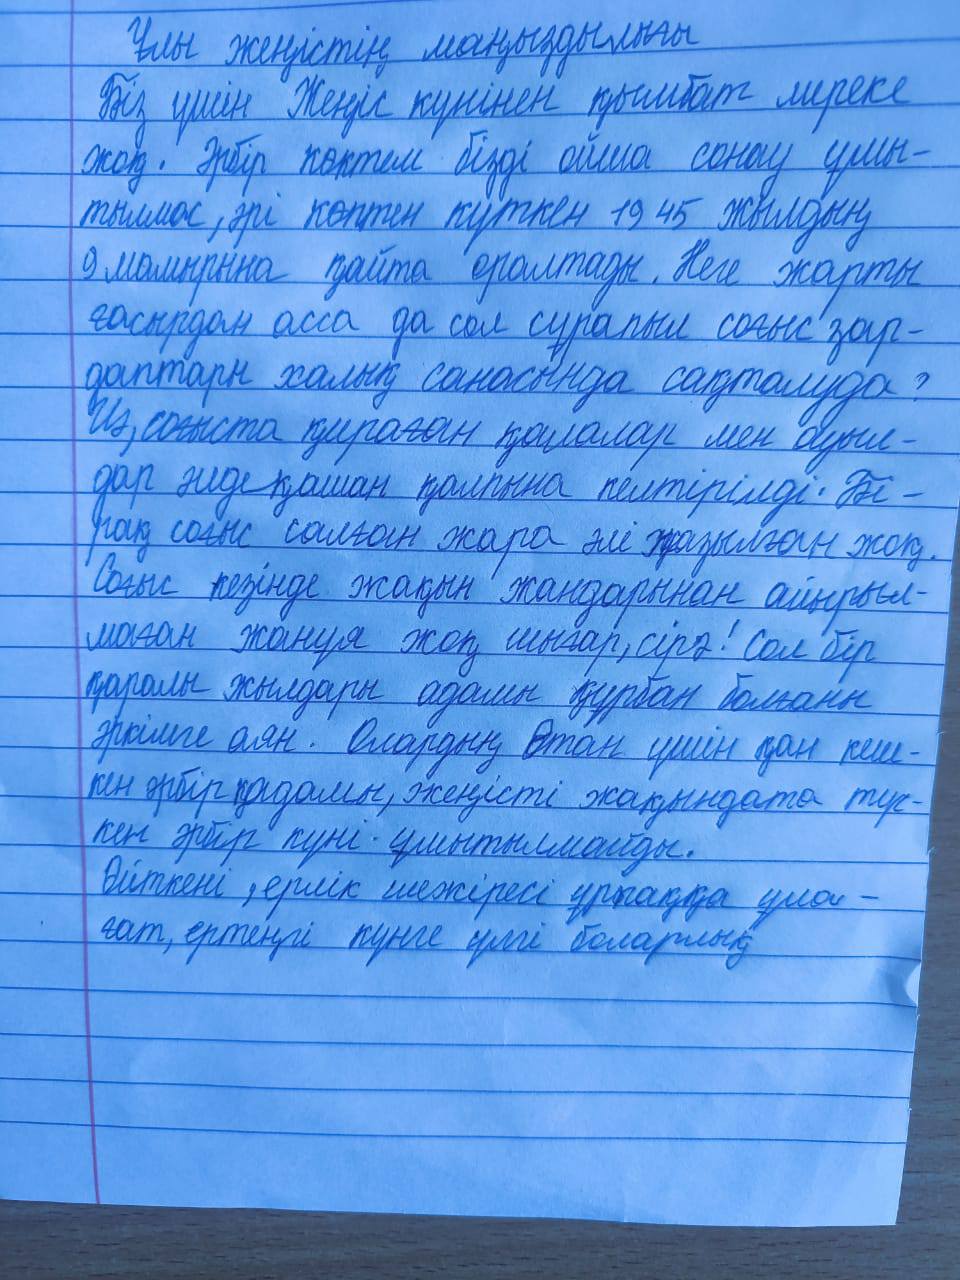 Ұлы жеңістің маңыздылығы
Біз үшін Жеңіс күнінен қымбат мереке
жоқ. Әрбір көктем бізді ойша сонау ұмы-
тылмас, әрі көптен күткен 1945 жылдың
9 мамырына қайта оралтады. Неге жарты
ғасырдан асса да сол сұрапыл соғыс зар-
даптары халық санасында сақталуда?
Из, соғыста қираған қалалар мен ауыл-
дар әлдеқашан қалпына келтірілді. Бі-
рақ соғыс салған жара әлі жазылған жоқ.
Соғыс кезінде жақын жандарынан айырыл-
маған жанұя жоқ шығар, сірә! Сол бір
қаралы жылдары адамы құрбан болғаны
әркімге аян. Олардың Отан үшін қан кеш-
кен әрбір қадамы, жеңісті жақындата түс-
кен әрбір күні ұмытылмайды.
Өйткені, ерлік шежіресі ұрпаққа ұла-
ғат, ертеңгі күнге үлгі боларлық